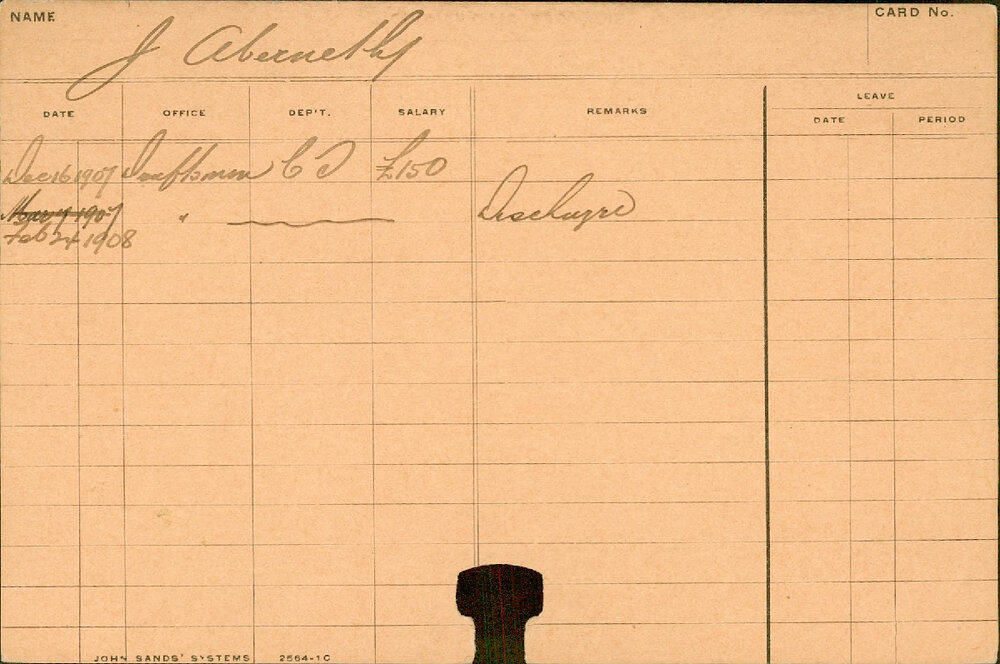 NAME
CARD No.
J Abernethy
LEAVE
DATE OFFICE DEP'T. SALARY REMARKS DATE PERIOD
Dec 16 1907 Draftsman C D £150
1907 " Discharge
Feb 24 1908
JOHN SANDS' SYSTEMS 2564-1C